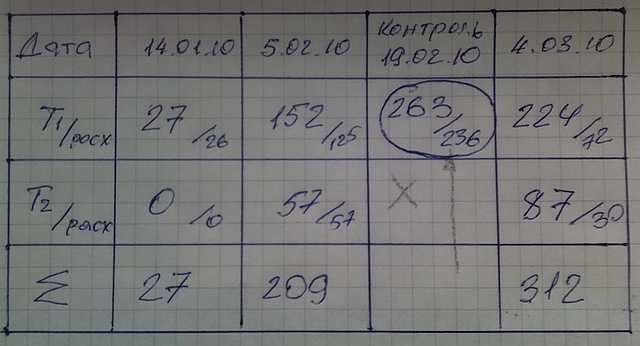 Дата 14.01.10 5.02.10 Контроль 19.02.10 4.03.10
T1/расх 27/26 152/125 263/236 224/72
T2/расх 0/0 57/57 X 87/30
Σ 27 209 312